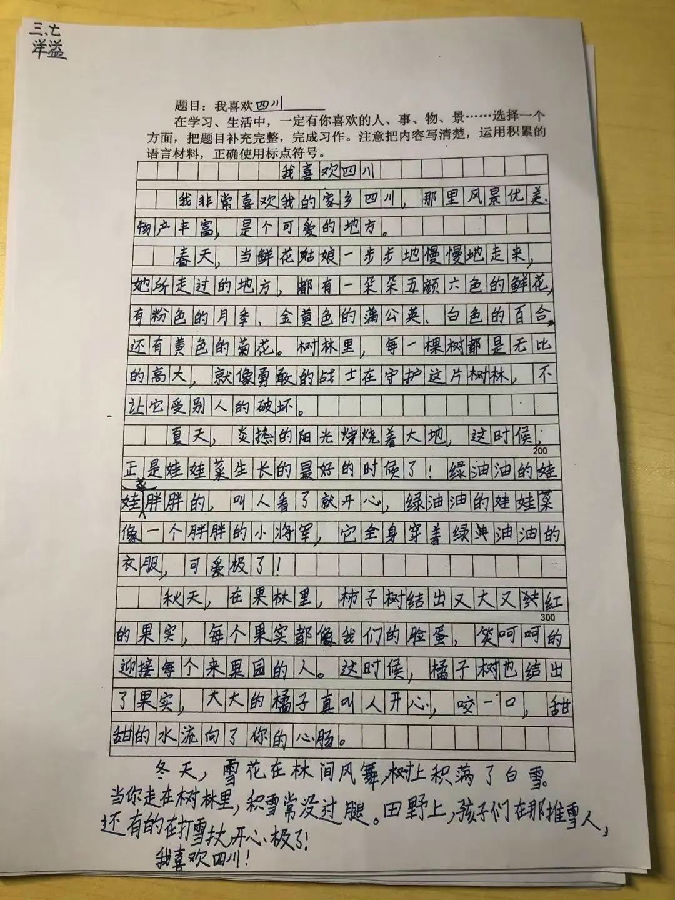 三、七
洋溢
题目：我喜欢四川
在学习、生活中，一定有你喜欢的人、事、物、景……选择一个
方面，把题目补充完整，完成习作。注意把内容写清楚，运用积累的
语言材料，正确使用标点符号。
我喜欢四川
我非常喜欢我的家乡四川，那里风景优美、
物产丰富，是个可爱的地方。
春天，当鲜花姑娘一步步地慢慢地走来，
她所走过的地方，都有一朵朵五颜六色的鲜花，
有粉色的月季、金黄色的蒲公英、白色的百合，
还有黄色的菊花。树林里，每一棵树都是无比
的高大，就像勇敢的战士在守护这片树林，不
让它受别人的破坏。
夏天，炎热的阳光烧烧着大地，这时候，
200
正是娃娃菜生长的最好的时候了！绿油油的娃
娃菜胖胖的，叫人看了就开心，绿油油的娃娃菜
像一个胖胖的小将军，它全身穿着绿油油的
衣服，可爱极了！
秋天，在果林里，柿子树结出又大又红
300
的果实，每个果实都像我们的脸蛋，笑呵呵的
迎接每个来果园的人。这时候，橘子树也结出
了果实，大大的橘子真叫人开心，咬一口，甜
甜的水流向了你的心肠。
冬天，雪花在林间风舞，树上积满了白雪。
当你走在树林里，积雪常没过腿。田野上，孩子们在那堆雪人，
还有的在打雪扙，开心极了！
我喜欢四川！